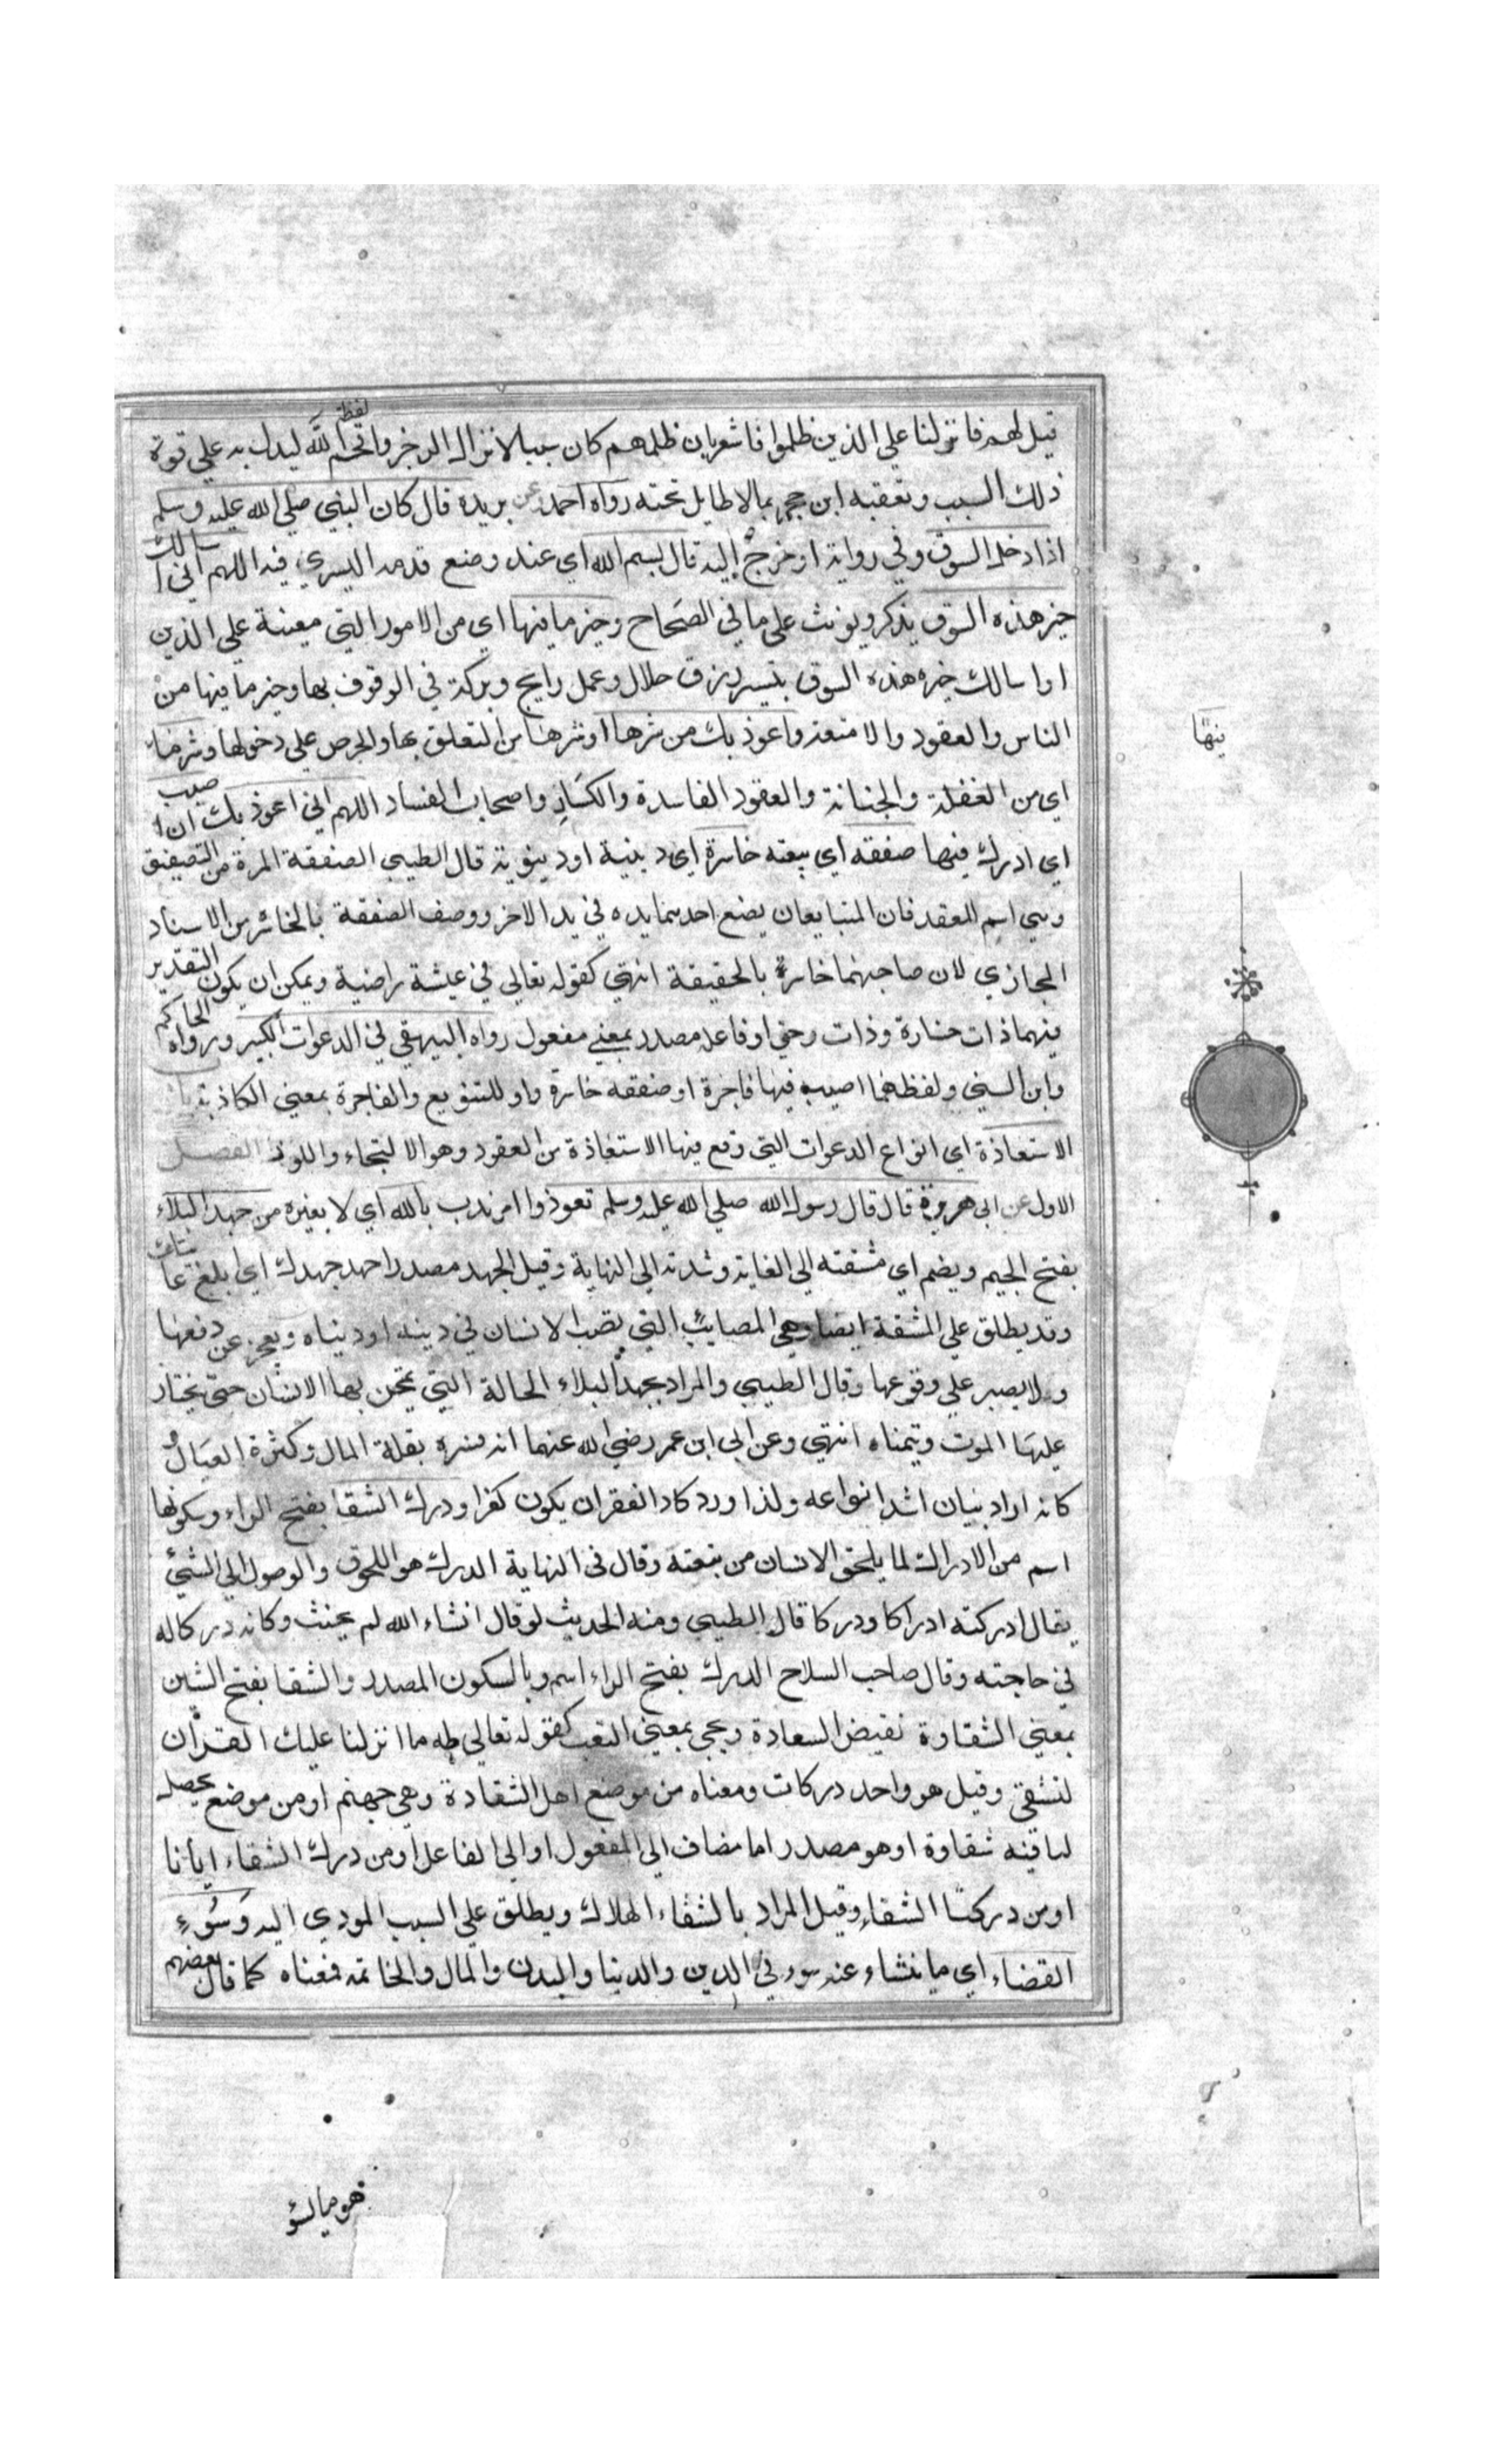 قيل لهم فانزلنا علي الذين ظلموا فاشعربان ظلمهم كان سببا لانزال الرجز واقحم لفظة الله ليدل به علي قوة
ذلك السبب وتعقبه ابن حجر بمالا طايل تحته رواه احمد وعن بريدة قال كان النبي صلي الله عليه وسلم
اذا دخل السوق وفي رواية اوخرج اليه قال بسم الله اي عند وضع قدمه اليسري فيه اللهم اني اسالك
خير هذه السوق يذكر ويونث علي ما في الصحاح وخير ما فيها اي من الامور التي معينة علي الدين
او اسالك خير هذه السوق بتيسر رزق حلال وعمل رابح وبركة في الوقوف بها وخير ما فيها من
الناس والعقود والامتعة واعوذ بك من شرها او شرها من التعلق بها والحرص علي دخولها وشر ما
فيها
اي من الغفلة والخيانة والعقود الفاسدة والكساد واصحاب الفساد اللهم اني اعوذ بك ان اصيب
اي ادرك فيها صفقة اي بيعته خاسرة اي دينية او دينوية قال الطيبي الصفقة المرة من التصفيق
وهي اسم للعقد فان المتبايعان يضع احدهما يده في يد الاخر ووصف الصفقة بالخاسر من الاسناد
المجازي لان صاحبهما خاسرة بالحقيقة انتهي كقوله تعالي في عيشة راضية ويمكن ان يكون التقدير
فيهما ذات خسارة وذات رضي او فاعل مصدر بمعني مفعول رواه البيهقي في الدعوات الكبير ورواه الحاكم
وابن السني ولفظهما اصيب فيها فاجرة او صفقة خاسرة واو للتنويع والفاجرة بمعني الكاذبة باب
الاستعاذة اي انواع الدعوات التي وقع فيها الاستعاذة من العقود وهو الالتجاء واللوذ الفصل
الاول عن ابي هريرة قال قال رسول الله صلي الله عليه وسلم تعوذوا امر ندب بالله اي لا بغيره من جهد البلاء
بفتح الجيم ويضم اي مشقته الي الغاية وشدته الي النهاية وقيل الجهد مصدر اجهد جهدك اي ابلغ غايتك
وقد يطلق علي المشقة ايضا وهي المصائب التي تصيب الانسان في دينه او دنياه ويعجز عن دفعها
ولا يصبر علي وقوعها وقال الطيبي والمراد بجهد البلاء الحالة التي يمتحن بها الانسان حتي يختار
عليها الموت ويتمناه انتهي وعن ابي ابن عمر رضي الله عنهما انه فسره بقلة المال وكثرة العيال و
كانه اراد بيان اشد انواعه ولذا ورد كاد الفقر ان يكون كفرا ودرك الشقا بفتح الراء وسكونها
اسم من الادراك لما يلحق الانسان من تبعته وقال في النهاية الدرك هو اللحوق والوصول الي الشئ
يقال ادركته ادراكا ودركا قال الطيبي ومنه الحديث لو قال انشاء الله لم يحنث وكانه دركا له
في حاجته وقال صاحب السلاح الدرك بفتح الراء اسم وبالسكون المصدر والشقا بفتح الشين
بمعني الشقاوة نقيض السعادة ويجي بمعني التعب كقوله تعالي طه ما انزلنا عليك القران
لتشقي وقيل هو واحد دركات ومعناه من موضع اهل الشقاوة وهي جهنم او من موضع يحصل
لنا فيه شقاوة او هو مصدر اما مضاف الي المفعول او الي الفاعل او من درك الشقاء ايانا
او من دركنا الشقاء وقيل المراد بالشقاء الهلاك ويطلق علي السبب المودي اليه وسوء
القضاء اي ما ينشاء عنه سوء في الدين والدنيا والبدن والمال والخاتمة فمعناه كما قال بعضهم